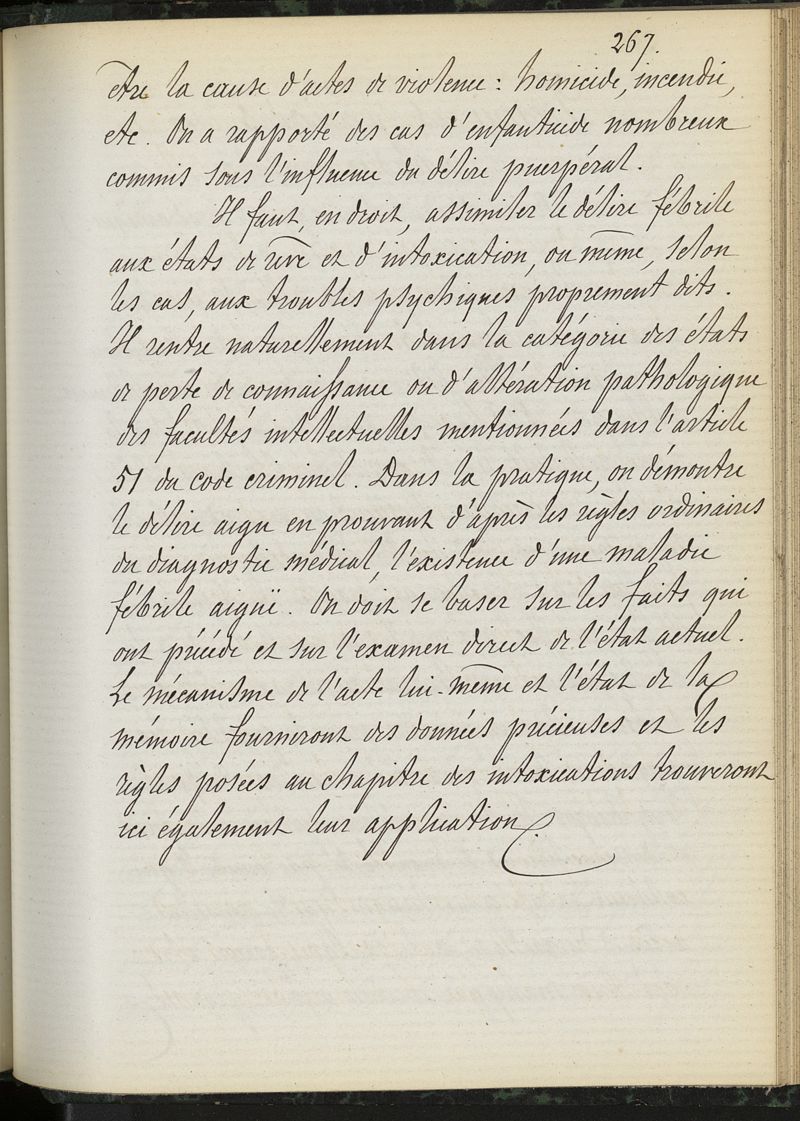 267.
être la cause d'actes de violence : homicide, incendie,
etc. On a rapporté des cas d'enfanticide nombreux
commis sous l'influence du délire puerpéral.
Il faut, en droit, assimiler le délire fébrile
aux états de rêve et d'intoxication, ou même, selon
les cas, aux troubles psychiques proprement dits.
Il rentre naturellement dans la catégorie des états
de perte de connaissance ou d'altération pathologique
des facultés intellectuelles mentionnées dans l'article
51 du code criminel. Dans la pratique, on démontre
le délire aigu en prouvant d'après les règles ordinaires
du diagnostic médical, l'existence d'une maladie
fébrile aiguë. On doit se baser sur les faits qui
ont précédé et sur l'examen direct de l'état actuel.
Le mécanisme de l'acte lui-même et l'état de la
mémoire fourniront des données précieuses et les
règles posées au chapitre des intoxications trouveront
ici également leur application.